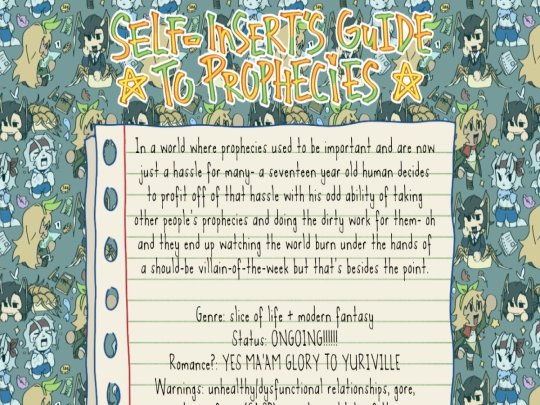 SELF-INSERT'S GUIDE
TO PROPHECIES
In a world where prophecies used to be important and are now
just a hassle for many- a seventeen year old human decides
to profit off of that hassle with his odd ability of taking
other people's prophecies and doing the dirty work for them- oh
and they end up watching the world burn under the hands of
a should-be villain-of-the-week but that's besides the point.
Genre: slice of life + modern fantasy
Status: ONGOING!!!!!!
Romance?: YES MA'AM GLORY TO YURIVILLE
Warnings: unhealthy/dysfunctional relationships, gore,